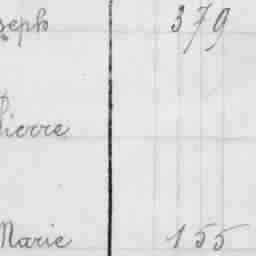 seph 379
Pierre
Marie 155